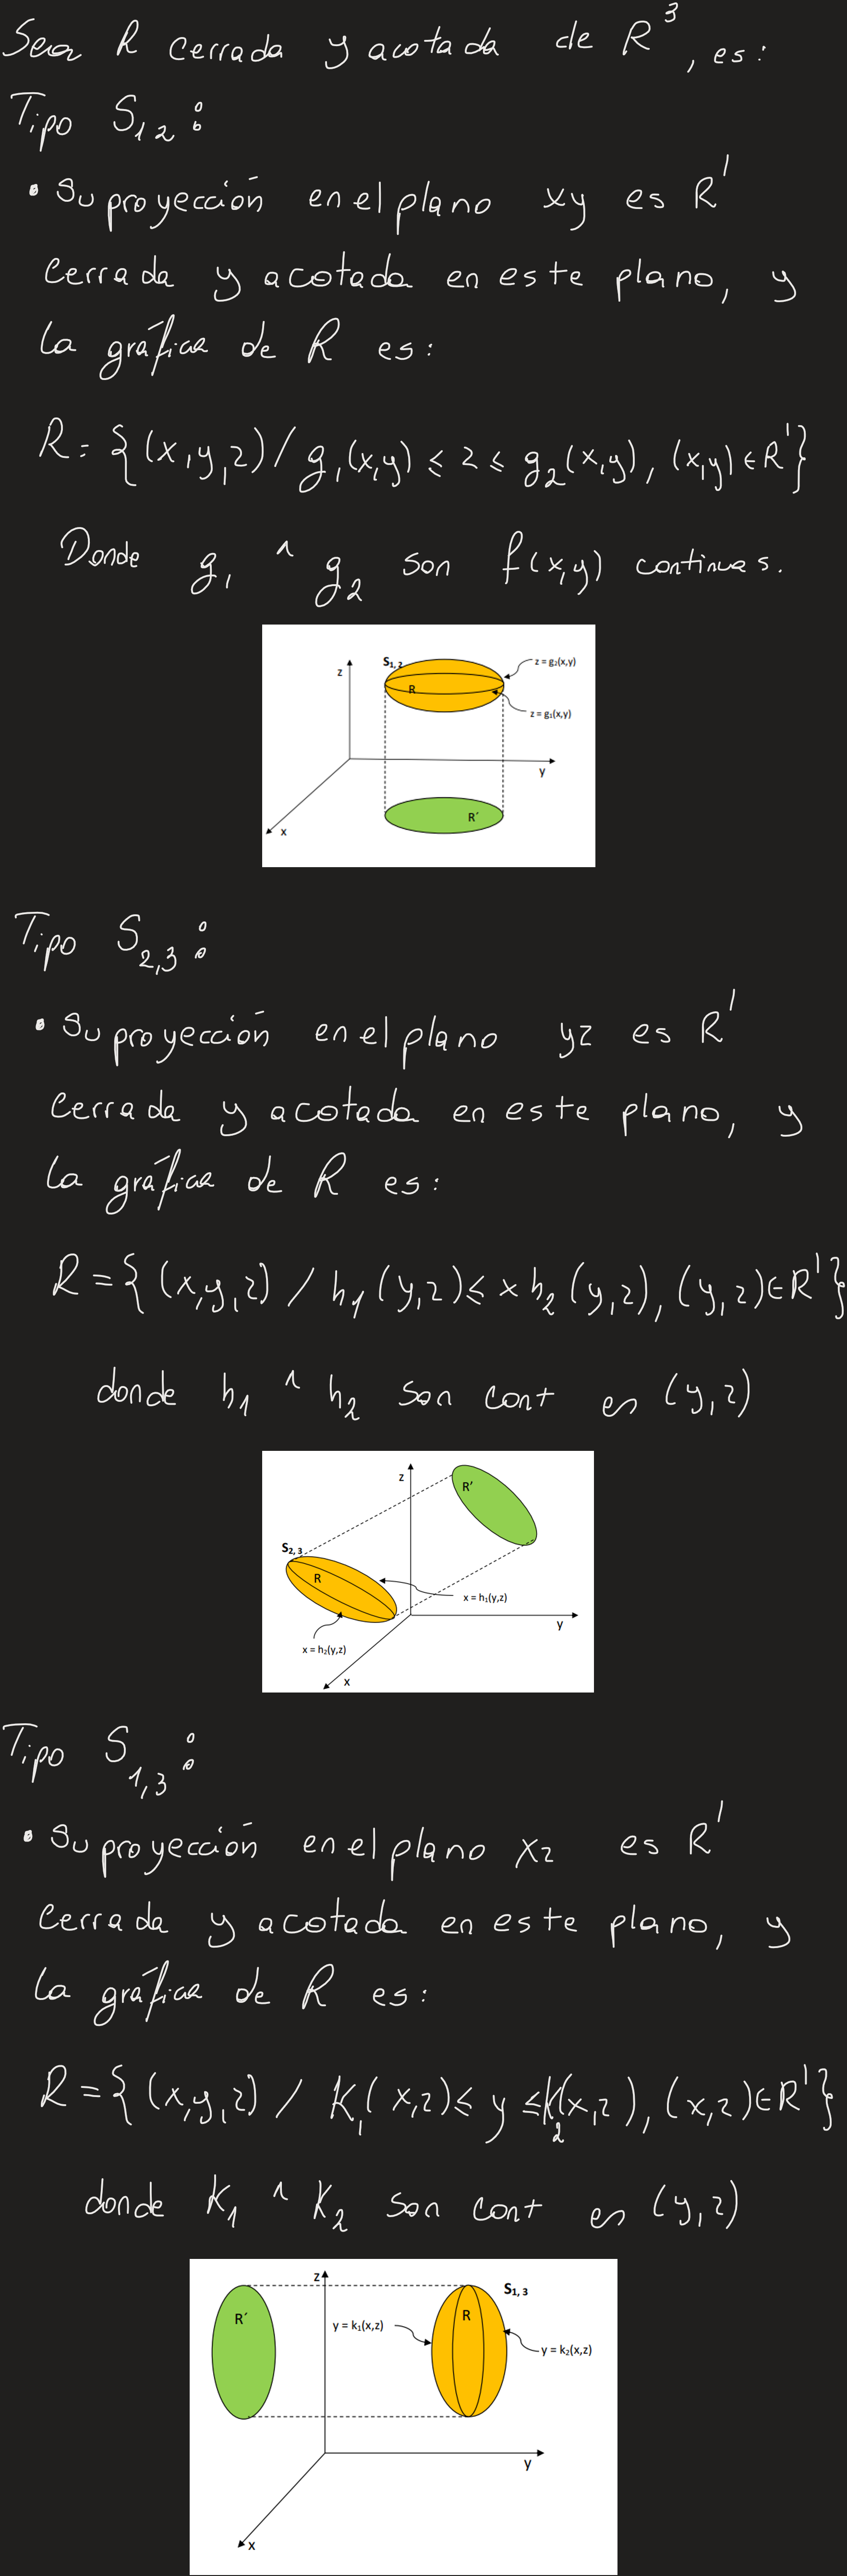 Sea R cerrada y acotada de R³, es:
Tipo S₁₂:
• Su proyección en el plano xy es R'
cerrada y acotada en este plano, y
la gráfica de R es:
R = {(x,y,z) / g₁(x,y) ≤ z ≤ g₂(x,y), (x,y) ∈ R'}
Donde g₁ ^ g₂ son f(x,y) continuas.
S₁,₂
z
R
z = g₂(x,y)
z = g₁(x,y)
y
R´
x
Tipo S₂,₃:
• Su proyección en el plano yz es R'
cerrada y acotada en este plano, y
la gráfica de R es:
R = {(x,y,z) / h₁(y,z) ≤ x h₂(y,z), (y,z) ∈ R'}
donde h₁ ^ h₂ son cont en (y,z)
z
R'
S₂,₃
R
x = h₁(y,z)
y
x = h₂(y,z)
x
Tipo S₁,₃:
• Su proyección en el plano xz es R'
cerrada y acotada en este plano, y
la gráfica de R es:
R = {(x,y,z) / K₁(x,z) ≤ y ≤ K₂(x,z), (x,z) ∈ R'}
donde K₁ ^ K₂ son cont en (y,z)
z
S₁,₃
R´
R
y = k₁(x,z)
y = k₂(x,z)
y
x